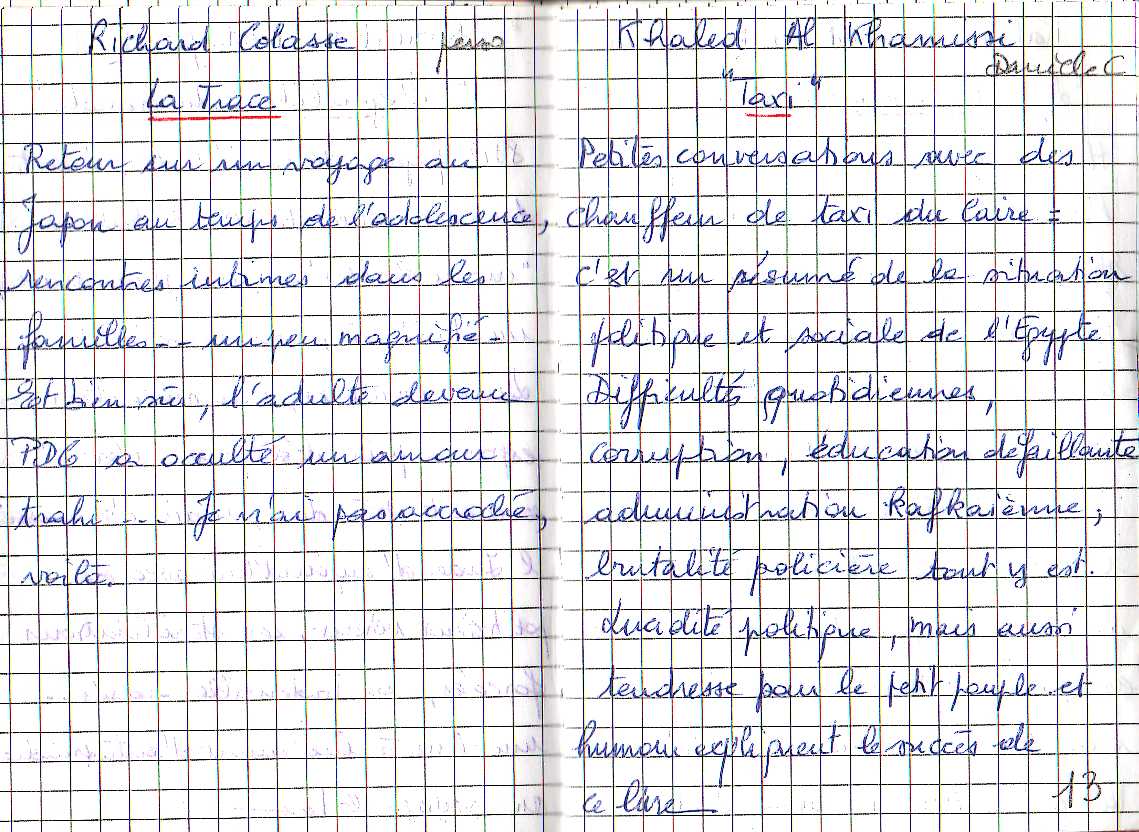 Richard Colasse
La Trace
Retour sur un voyage au
Japon au temps de l'adolescence,
rencontres intimes dans les
familles -- un peu magnifié -
Et bien sûr, l'adulte devenu
PDG a occulté un amour
trahi --- Je n'ai pas accroché,
voilà.
Khaled Al Khamissi
Danièle C
"Taxi"
Petites conversations avec des
chauffeur de taxi du Caire =
c'est un résumé de la situation
politique et sociale de l'Egypte
Difficultés quotidiennes,
corruption, éducation défaillante
administration Kafkaïenne,
brutalité policière tout y est.
Lucidité politique, mais aussi
tendresse pour le petit peuple et
humour expliquent le succès de
ce livre
13